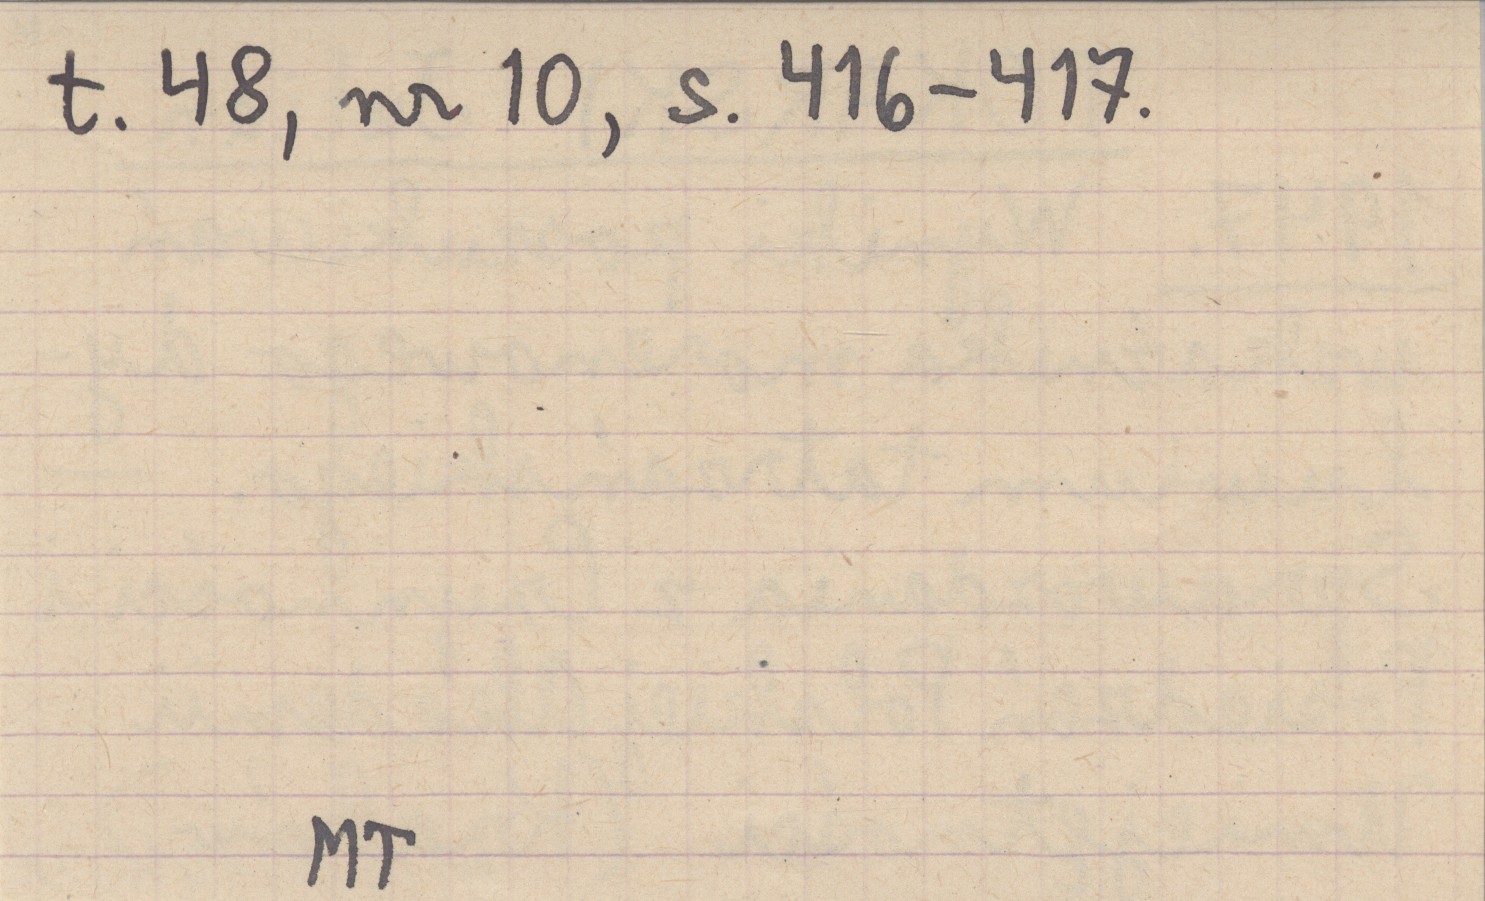 t. 48, nr 10, s. 416-417.
MT